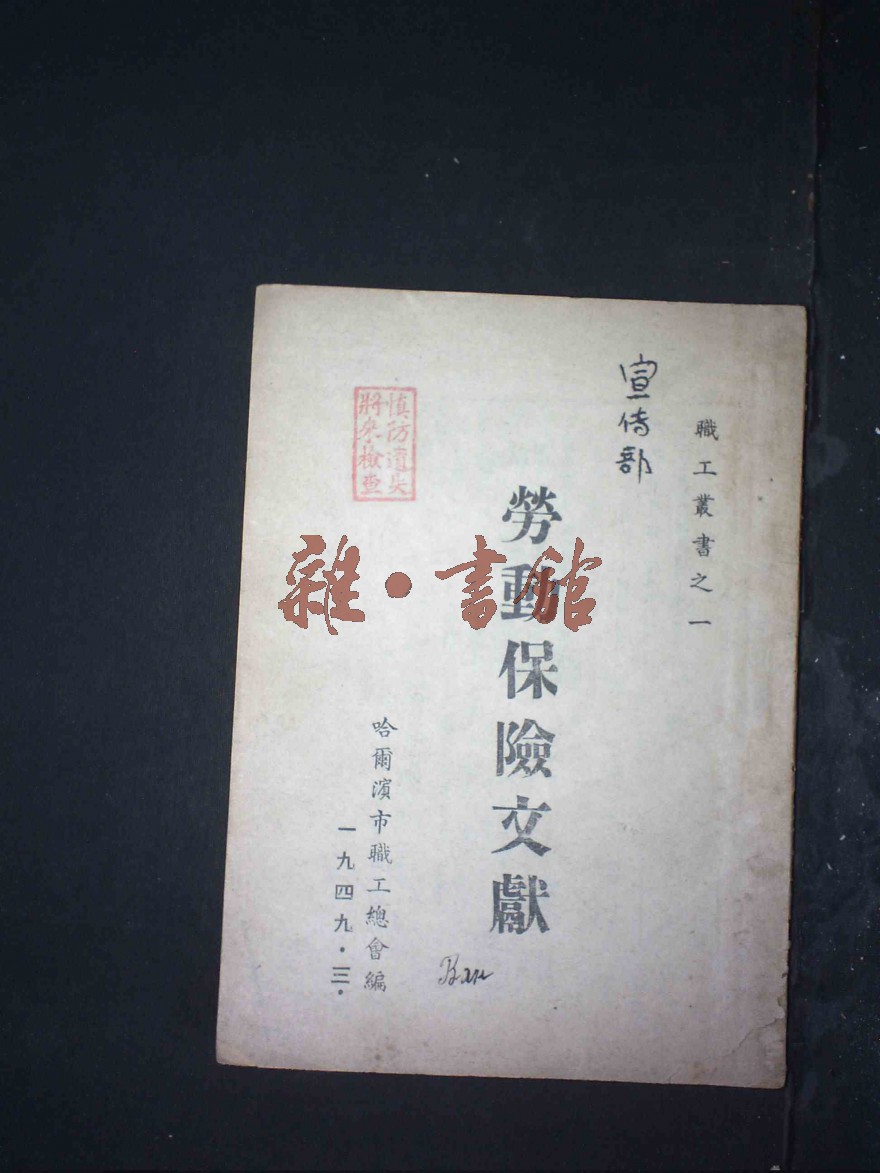 職工叢書之一
宣传部
勞動保險文獻
慎防遺失
將來檢查
哈爾濱市職工總會編
一九四九·三·
雜·書館